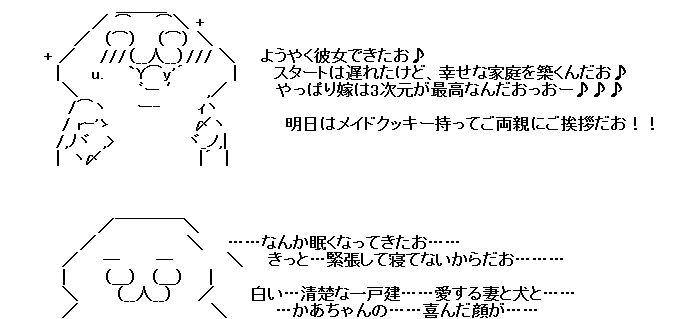 ようやく彼女できたお♪
スタートは遅れたけど、幸せな家庭を築くんだお♪
やっぱり嫁は3次元が最高なんだおっおー♪♪♪
明日はメイドクッキー持ってご両親にご挨拶だお！！
……なんか眠くなってきたお……
きっと…緊張して寝てないからだお………
白い…清楚な一戸建……愛する妻と犬と……
…かあちゃんの……喜んだ顔が……